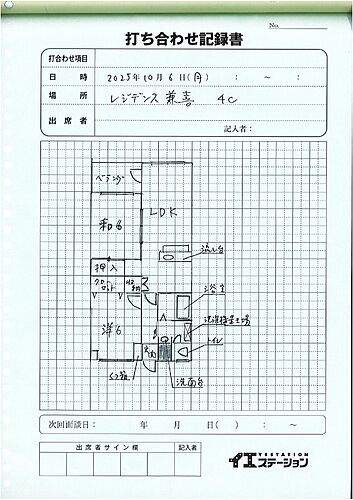 No.
打ち合わせ記録書
打合わせ項目
日 時 2025年10月6日(月) : ～ :
場 所 レジデンス兼喜 4C
出 席 者
記入者:
ベランダ
和6
LDK
流し台
押入
クロゼット
浴室
洗濯機置き場
洋6
トイレ
玄関
洗面台
次回面談日: 年 月 日( ) : ～ :
出 席 者 サ イ ン 欄 記入者
YESTATION
イエステーション